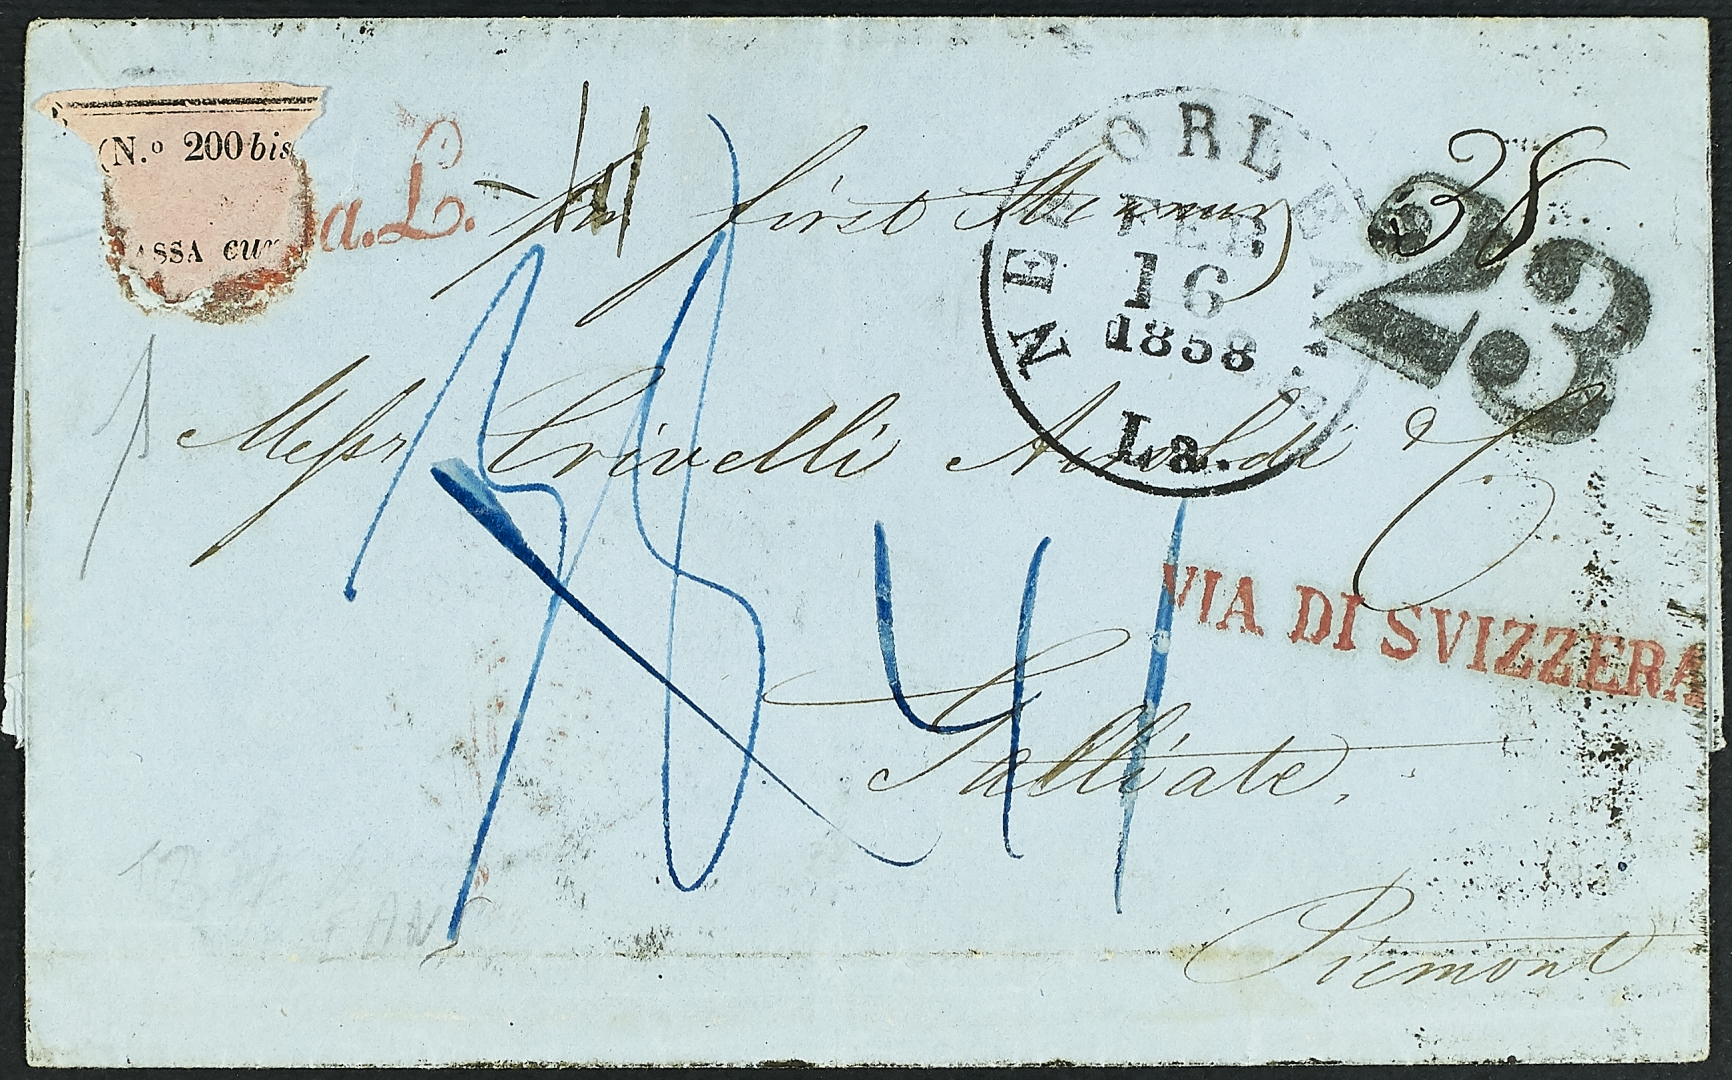 (N.º 200 bis
ASSA
a.L.
per first Steamer
NEW ORLEANS
FEB
16
1858
La.
38
23
Messr Crivelli Arnoldi & C
41
VIA DI SVIZZERA
Galliate.
Piemont